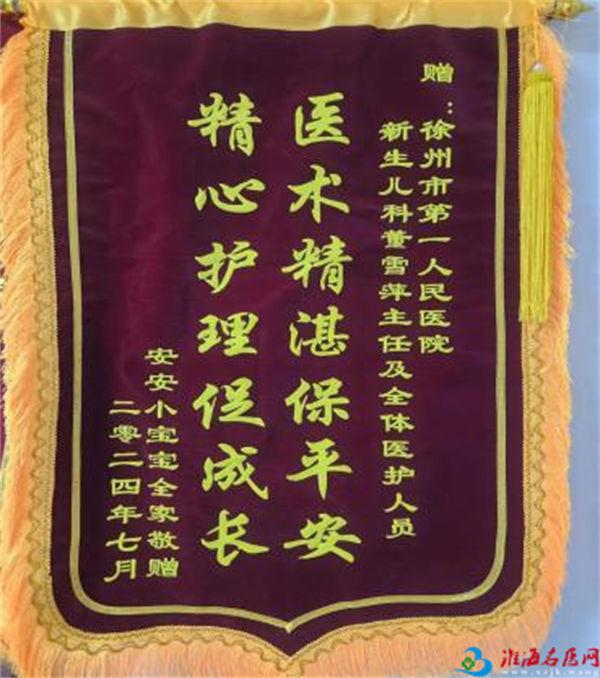 赠：徐州市第一人民医院
新生儿科董雪萍主任及全体医护人员
医术精湛保平安
精心护理促成长
安安小宝宝全家敬赠
二零二四年七月
淮海名医网
www.xzjk.wang